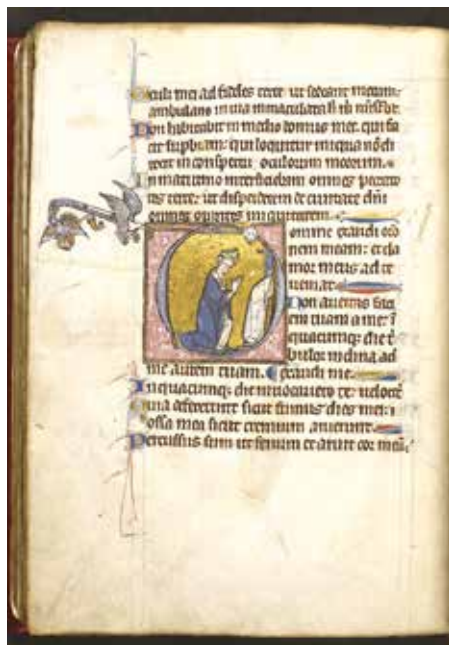 Oculi mei ad fideles terre ut sedeant mecum:
ambulans in via inmaculata
Non habitabit in medio domus mee. qui fa
cit supbiam: qui loquitur iniqua nō di
rexit in conspectu oculorum meorum.
In matutino interficiebam omnes peccato
res terre: ut disperderem de civitate dn̄i
omnes operantes iniquitatem.
Domine exaudi orō
nem meam: et cla
mor meus ad te
veniat.
Non avertas faci
em tuam a me: ī
quacumq; die t̄
bulor inclina ad
me aurem tuam. exaudi me.
In quacumq; die invocavero te: velocit̄
Quia defecerunt sicut fumus dies mei: ⁊
ossa mea sicut cremium aruerunt.
Percussus sum ut fenum et aruit cor meū: